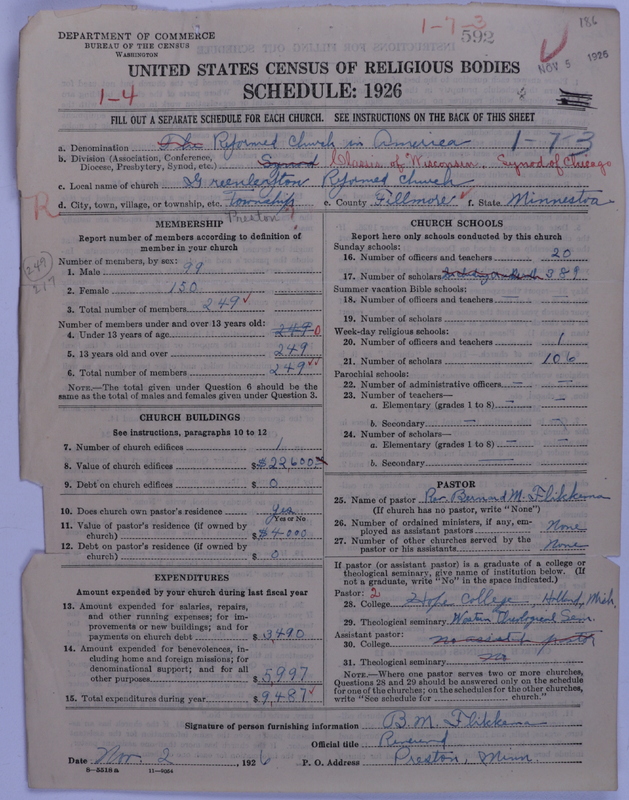 1-7-3
186
592
DEPARTMENT OF COMMERCE
BUREAU OF THE CENSUS
WASHINGTON
NOV 5 1926
UNITED STATES CENSUS OF RELIGIOUS BODIES
1-4
SCHEDULE: 1926
FILL OUT A SEPARATE SCHEDULE FOR EACH CHURCH. SEE INSTRUCTIONS ON THE BACK OF THIS SHEET
a. Denomination The Reformed Church in America 1-7-3
b. Division (Association, Conference, Diocese, Presbytery, Synod, etc.) Synod Classis of Wisconsin, Synod of Chicago
c. Local name of church Greenleafton Reformed Church
R
d. City, town, village, or township, etc. Township Preston e. County Fillmore f. State Minnestoa
MEMBERSHIP
Report number of members according to definition of
member in your church
249
Number of members, by sex:
1. Male 99
2. Female 150
3. Total number of members 249
Number of members under and over 13 years old:
4. Under 13 years of age 249 0
5. 13 years old and over 249
6. Total number of members 249
NOTE.—The total given under Question 6 should be the
same as the total of males and females given under Question 3.
CHURCH BUILDINGS
See instructions, paragraphs 10 to 12
7. Number of church edifices 1
8. Value of church edifices $ $22600
9. Debt on church edifices $ 0
10. Does church own pastor's residence Yes
Yes or No
11. Value of pastor's residence (if owned by
church) $ $4000
12. Debt on pastor's residence (if owned by
church) $ 0
EXPENDITURES
Amount expended by your church during last fiscal year
13. Amount expended for salaries, repairs,
and other running expenses; for im-
provements or new buildings; and for
payments on church debt $ 3490
14. Amount expended for benevolences, in-
cluding home and foreign missions; for
denominational support; and for all
other purposes $ 5,997
15. Total expenditures during year $ 9487
CHURCH SCHOOLS
Report here only schools conducted by this church
Sunday schools:
16. Number of officers and teachers 20
17. Number of scholars 389
Summer vacation Bible schools:
18. Number of officers and teachers —
19. Number of scholars —
Week-day religious schools:
20. Number of officers and teachers 1
21. Number of scholars 106
Parochial schools:
22. Number of administrative officers —
23. Number of teachers—
a. Elementary (grades 1 to 8) —
b. Secondary —
24. Number of scholars—
a. Elementary (grades 1 to 8) —
b. Secondary —
PASTOR
25. Name of pastor Rev Bernard M. Flikkema
(If church has no pastor, write "None")
26. Number of ordained ministers, if any, em-
ployed as assistant pastors None
27. Number of other churches served by the
pastor or his assistants None
If pastor (or assistant pastor) is a graduate of a college or
theological seminary, give name of institution below. (If
not a graduate, write "No" in the space indicated.)
Pastor: 2
28. College Hope College, Holland, Mich.
29. Theological seminary Western Theological Sem.
Assistant pastor:
30. College no assist pastor
31. Theological seminary no
NOTE.—Where one pastor serves two or more churches,
Questions 28 and 29 should be answered only on the schedule
for one of the churches; on the schedules for the other churches,
write "See schedule for church."
Signature of person furnishing information B. M. Flikkema
Official title Reverend
Date Nov. 2, 1926 P. O. Address Preston, Minn.
8—5518a 11—9054